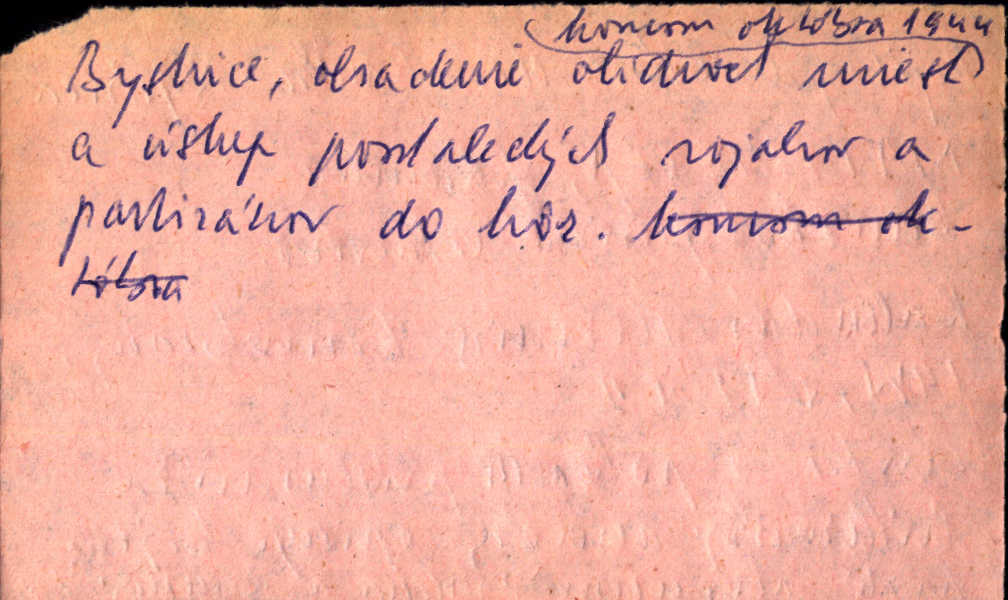 koncom októbra 1944
Bystrice, obsadenie oboch miest
a ústup povstaleckých vojakov a
partizánov do hôr. koncom ok-
tóbra